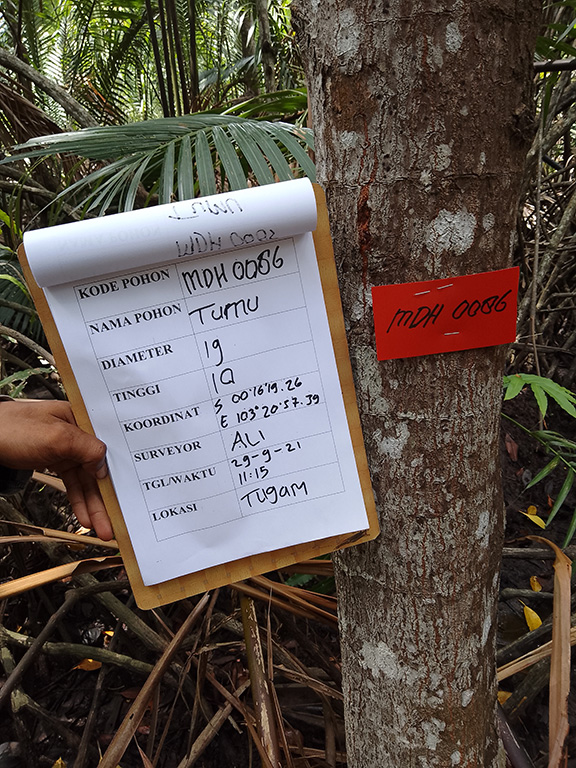 KODE POHON MDH 0086
NAMA POHON Tumu
DIAMETER 19
TINGGI 10
KOORDINAT S 00°16'19.26
E 103°20'57.39
SURVEYOR ALI
TGL/WAKTU 29-9-21
11:15
LOKASI Tugam
MDH 0086